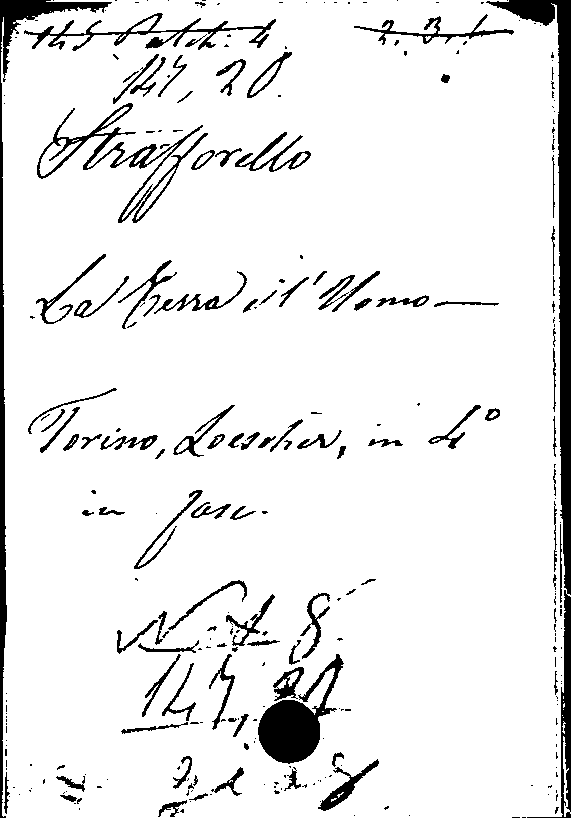 145 Palch. 4 2. 3. !
147, 20.
Strafforello
La Terra e l'Uomo—
Torino, Loescher, in 4º
in fasc.
Nat. 8.
147,